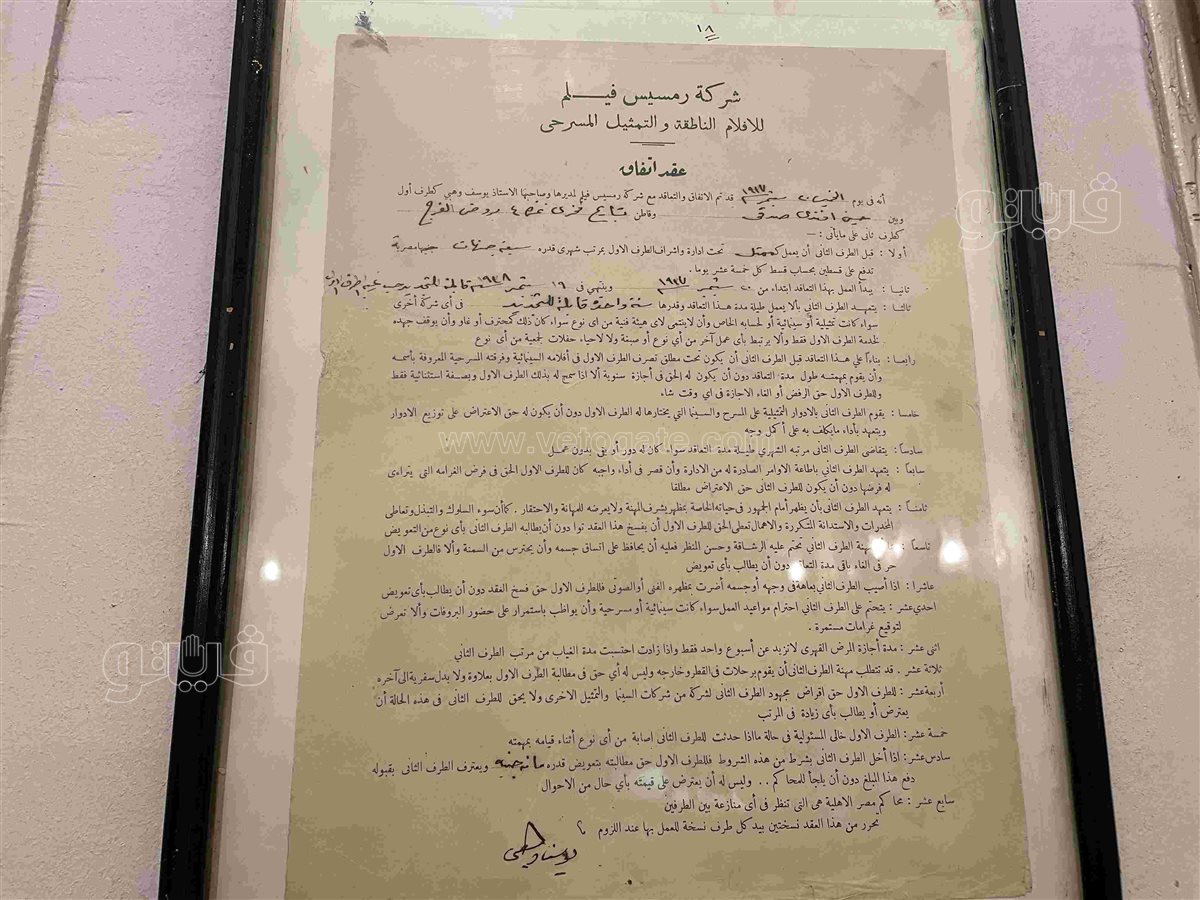 ١٨
شركة رمسيس فيلم
للافلام الناطقة والتمثيل المسرحى
عقد اتفاق
أنه فى يوم الخميس سبتمبر ١٩٣٧ قد تم الاتفاق والتعاقد مع شركة رمسيس فيلم لمديرها وصاحبها الاستاذ يوسف وهبى كطرف أول
وبين حسين افندى صدقى وقاطن روض الفرج
كطرف ثانى على مايأتى : —
أولا : قبل الطرف الثانى أن يعمل كممثل تحت ادارة واشراف الطرف الاول بمرتب شهرى قدره جنيها مصرية
تدفع على قسطين بحساب قسط كل خمسة عشر يوما .
ثانيا : يبدأ العمل بهذا التعاقد ابتداء من ٢٠ سبتمبر ١٩٣٧ وينتهى فى ١٩ سبتمبر ١٩٣٨
ثالثا : يتعهد الطرف الثانى بألا يعمل طيلة مدة هذا التعاقد وقدرها سنة واحدة قابلة للتجديد فى أى شركة أخرى
سواء كانت تمثيلية أو سينمائية أو لحسابه الخاص وأن لاينتمى لاى هيئة فنية من اى نوع سواء كان ذلك كمحترف أو غاو وأن يوقف جهده
لخدمة الطرف الاول فقط وألا يرتبط بأى عمل آخر من أى نوع أو صبغة ولا احياء حفلات لجمعية من أى نوع
رابعا : بناءاً على هذا التعاقد قبل الطرف الثانى أن يكون تحت مطلق تصرف الطرف الاول فى أفلامه السينمائية وفرقته المسرحية المعروفة بأسمه
وأن يقوم بمهمته طول مدة التعاقد دون أن يكون له الحق فى أجازة سنوية ألا اذا سمح له بذلك الطرف الاول وبصفة استثنائية فقط
وللطرف الاول حق الرفض أو الغاء الاجازة فى اى وقت شاء
خامسا : يقوم الطرف الثانى بالادوار التمثيلية على المسرح والسينما التي يختارها له الطرف الاول دون أن يكون له حق الاعتراض على توزيع الادوار
ويتعهد بأداء مايكلف به على أكمل وجه
www.vetogate.com
سادساً : يتقاضى الطرف الثانى مرتبه الشهرى طيلة مدة التعاقد سواء كان له دور أو بقى بدون عمل
سابعاً : يتعهد الطرف الثانى باطاعة الاوامر الصادرة له من الادارة وأن قصر فى أداء واجبه كان للطرف الاول الحق فى فرض الغرامه التى يتراءى
له فرضها دون أن يكون للطرف الثانى حق الاعتراض مطلقا
ثامنا : يتعهد الطرف الثانى بأن يظهر أمام الجمهور فى حياته الخاصة بمظهر يشرف المهنة ولا يعرضه للمهانة والاحتقار . كما أن سوء السلوك والتبذل وتعاطى
المخدرات والاستدانة المتكررة والاهمال تعطى الحق للطرف الاول أن يفسخ هذا العقد توا دون أن يطالبه الطرف الثانى بأى نوع من التعويض
تاسعاً : مهنة الطرف الثانى تحتم عليه الرشاقة وحسن المنظر فعليه أن يحافظ على اتساق جسمه وأن يحترس من السمنة وألا فالطرف الاول
حر فى الغاء باقى مدة التعاقد دون أن يطالب بأى تعويض
عاشرا : اذا أصيب الطرف الثانى بعاهة فى وجهه أو جسمه أضرت بمظهره الفنى أو الصوتى فللطرف الاول حق فسخ العقد دون أن يطالب بأى تعويض
احدي عشر : يتحتم على الطرف الثانى احترام مواعيد العمل سواء كانت سينمائية أو مسرحية وأن يواظب باستمرار على حضور البروفات وألا تعرض
لتوقيع غرامات مستمرة .
اثنى عشر : مدة أجازة المرض القهرى لاتزيد عن أسبوع واحد فقط واذا زادت احتسبت مدة الغياب من مرتب الطرف الثانى
ثلاثة عشر . قد تتطلب مهنة الطرف الثانى أن يقوم برحلات فى القطر وخارجه وليس له أي حق فى مطالبة الطرف الاول بعلاوة ولا بدل سفرية الى آخره
أربعة عشر : للطرف الاول حق اقراض مجهود الطرف الثانى لشركة من شركات السينما والتمثيل الاخرى ولا يحق للطرف الثانى فى هذه الحالة أن
يعترض أو يطالب بأى زيادة فى المرتب
خمسة عشر : الطرف الاول خالى المسئولية فى حالة مااذا حدثت للطرف الثانى اصابة من أى نوع أثناء قيامه بمهمته
سادس عشر : اذا أخل الطرف الثانى بشرط من هذه الشروط فللطرف الاول حق مطالبته بتعويض قدره مائة جنيه ويعترف الطرف الثانى بقبوله
دفع هذا المبلغ دون أن يلجأ للمحاكم . . وليس له أن يعترض على قيمته بأي حال من الاحوال
سابع عشر : محاكم مصر الاهلية هى التى تنظر فى أى منازعة بين الطرفين
تحرر من هذا العقد نسختين بيد كل طرف نسخة للعمل بها عند اللزوم
فيتو
فيتو